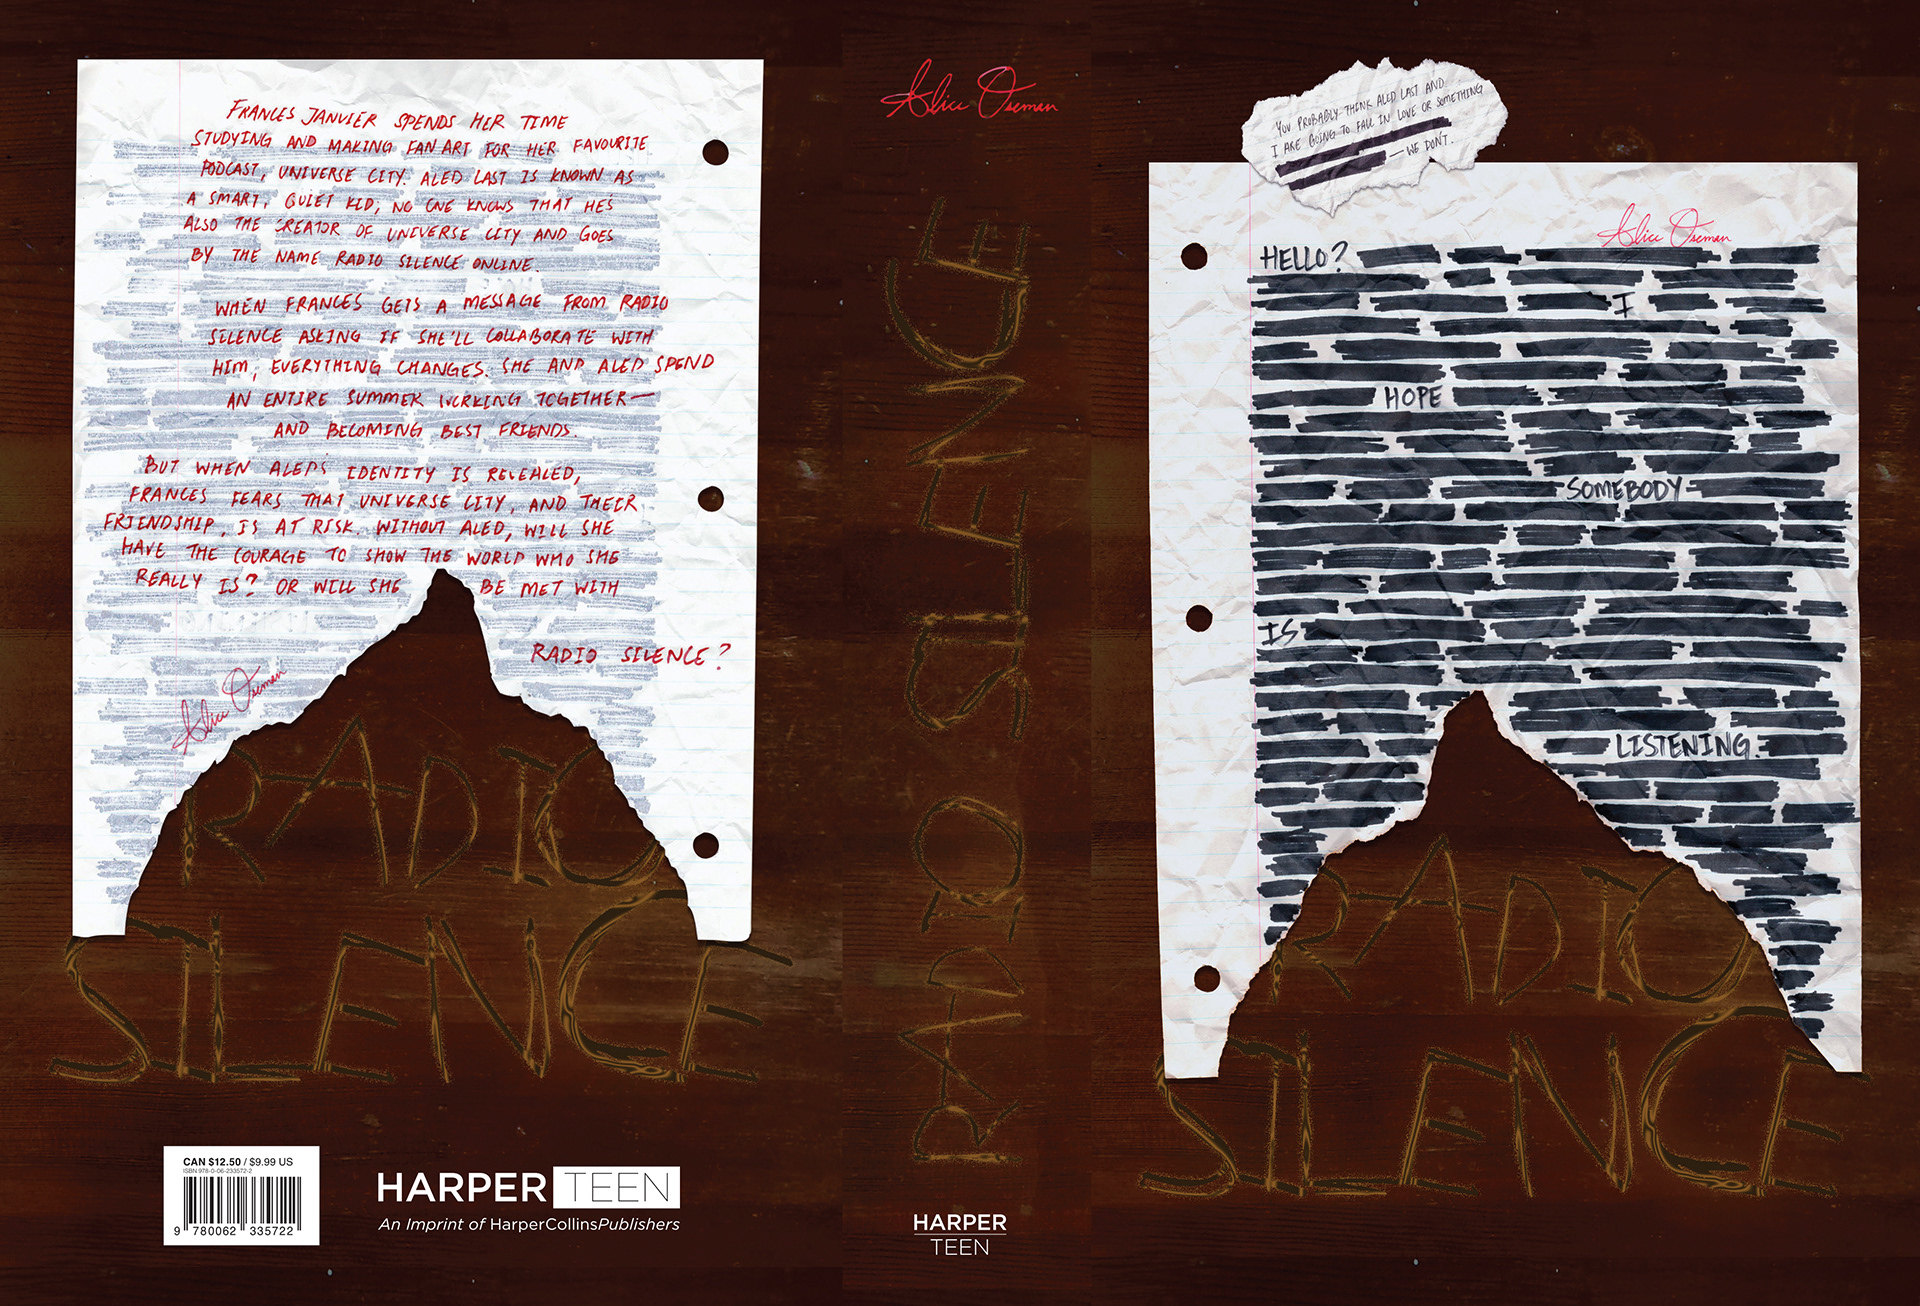 FRANCES JANVIER SPENDS HER TIME
STUDYING AND MAKING FAN ART FOR HER FAVOURITE
PODCAST, UNIVERSE CITY. ALED LAST IS KNOWN AS
A SMART, QUIET KID; NO ONE KNOWS THAT HE'S
ALSO THE CREATOR OF UNIVERSE CITY AND GOES
BY THE NAME RADIO SILENCE ONLINE.
WHEN FRANCES GETS A MESSAGE FROM RADIO
SILENCE ASKING IF SHE'LL COLLABORATE WITH
HIM, EVERYTHING CHANGES. SHE AND ALED SPEND
AN ENTIRE SUMMER WORKING TOGETHER—
AND BECOMING BEST FRIENDS.
BUT WHEN ALED'S IDENTITY IS REVEALED,
FRANCES FEARS THAT UNIVERSE CITY, AND THEIR
FRIENDSHIP, IS AT RISK. WITHOUT ALED, WILL SHE
HAVE THE COURAGE TO SHOW THE WORLD WHO SHE
REALLY IS? OR WILL SHE BE MET WITH
RADIO SILENCE?
Alice Oseman
RADIO
SILENCE
CAN $12.50 / $9.99 US
ISBN 978-0-06-233572-2
9 780062 335722
HARPER TEEN
An Imprint of HarperCollinsPublishers
Alice Oseman
RADIO SILENCE
HARPER
TEEN
YOU PROBABLY THINK ALED LAST AND
I ARE GOING TO FALL IN LOVE OR SOMETHING
— WE DON'T.
Alice Oseman
HELLO?
I
HOPE
SOMEBODY
IS
LISTENING.
RADIO
SILENCE